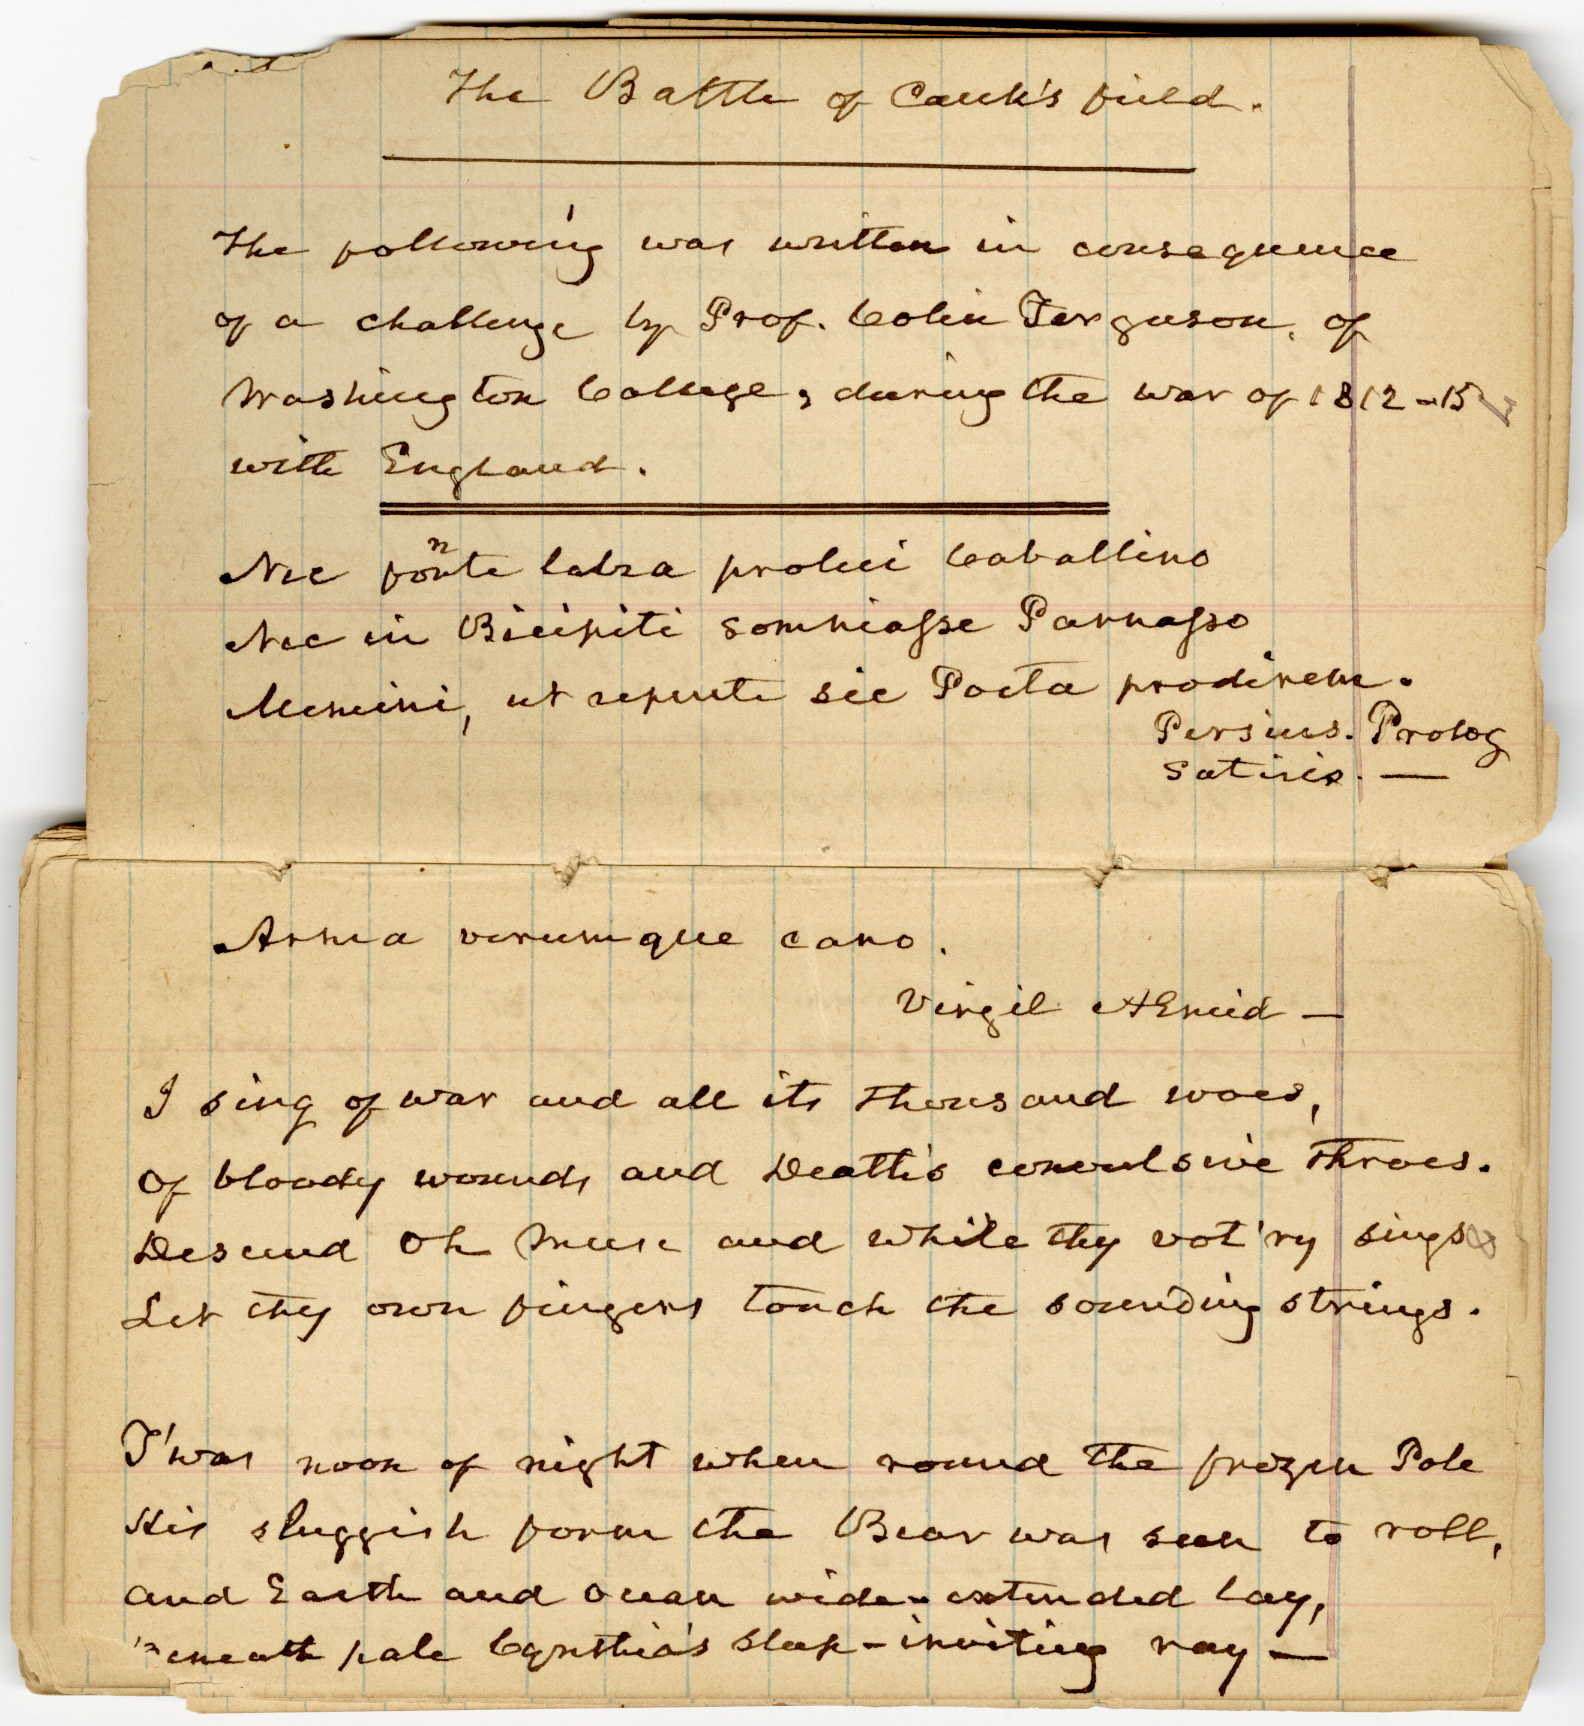 The Battle of Cauk's field.
The following was written in consequence
of a challenge by Prof. Colin Ferguson, of
Washington College, during the war of 1812-15
with England.
Nec fonte labra prolui Caballino
Nec in Bicipiti somniasse Parnasso
Memini, ut repente sic Poeta prodirem.
Persius. Prolog
Satiris. —
Arma virumque cano.
Virgil AEneid —
I sing of war and all its thousand woes,
Of bloody wounds and Death's convulsive throes.
Descend Oh Muse and while thy vot'ry sings
Let thy own fingers touch the sounding strings.
T'was noon of night when round the frozen Pole
His sluggish form the Bear was seen to roll,
And Earth and Ocean wide-extended lay,
'neath pale Cynthia's sleep-inviting ray —